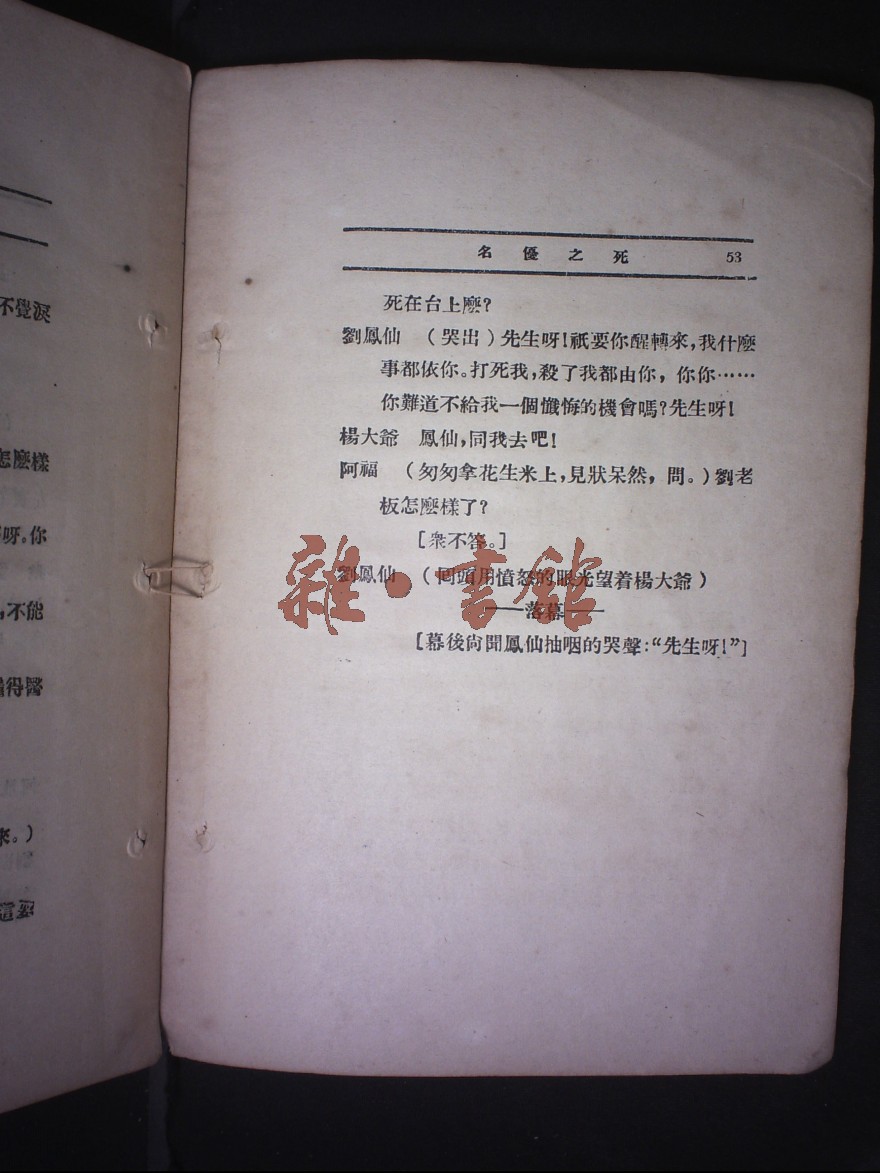 不覺淚
怎麽樣
呀。你
,不能
得醫
來。)
這
名優之死 53
死在台上麽?
劉鳳仙 (哭出)先生呀!祇要你醒轉來,我什麽
事都依你。打死我,殺了我都由你,你你……
你難道不給我一個懺悔的機會嗎?先生呀!
楊大爺 鳳仙,同我去吧!
阿福 (匆匆拿花生米上,見狀呆然,問。)劉老
板怎麽樣了?
[衆不答。]
劉鳳仙 (回頭用憤怒的眼光望着楊大爺)
——落幕——
[幕後尙聞鳳仙抽咽的哭聲:“先生呀!”]
雜·書館